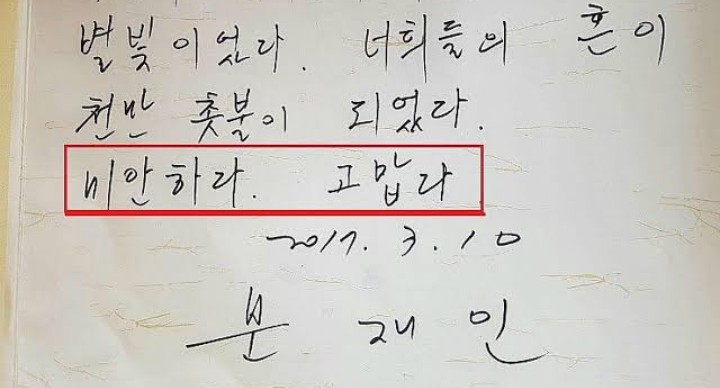 별빛이었다. 너희들의 혼이
천만 촛불이 되었다.
미안하다. 고맙다
2017. 3. 10
문 재 인